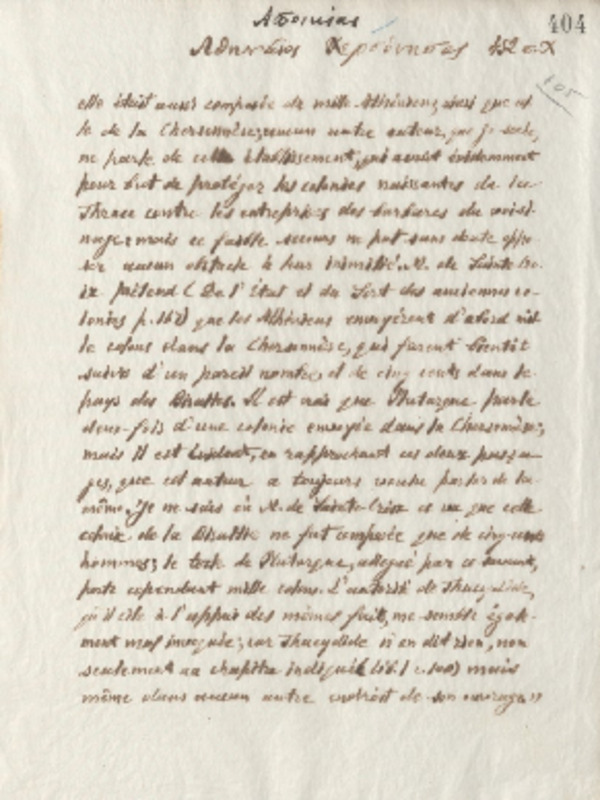 Αποικίαι
404
Αθηναίοι Χερσόνησος 452 π.Χ
105
elle était aussi composée de mille Athéniens, ainsi que cel-
le de la Chersonnèse; aucun autre auteur, que je sache,
ne parle de cette établissement, qui avait évidemment
pour but de protéger les colonies naissantes de la
Thrace contre les entreprises des barbares du voisi-
nage; mais ce faible secours ne put sans doute oppo-
ser aucun obstacle à leur inimitié. M. de Sainte Cro-
ix prétend (De l'État et du Sort des anciennes co-
lonies p. 168) que les Athéniens envoyèrent d'abord mil-
le colons dans la Chersonnèse, qui furent bientôt
suivis d'un pareil nombre, et de cinq cents dans le
pays des Bisaltes. Il est vrai que Plutarque parle
deux-fois d'une colonie envoyée dans la Chersonèse;
mais il est évident, en rapprochant ces deux passa-
ges, que cet auteur a toujours voulu parler de la
même. Je ne sais où M. de Sainte Croix a vu que cette
colonie de la Bisaltie ne fut composée que de cinq-cents
hommes; le texte de Plutarque, allégué par ce savant,
porte cependant mille colons. L'autorité de Thucydide,
qu'il cite à l'appui des mêmes faits, me semble égale-
ment mal invoquée; car Thucydide n'en dit rien, non
seulement au chapitre indiqué (lib. I c. 100) mais
même dans aucun autre endroit de son ouvrage»